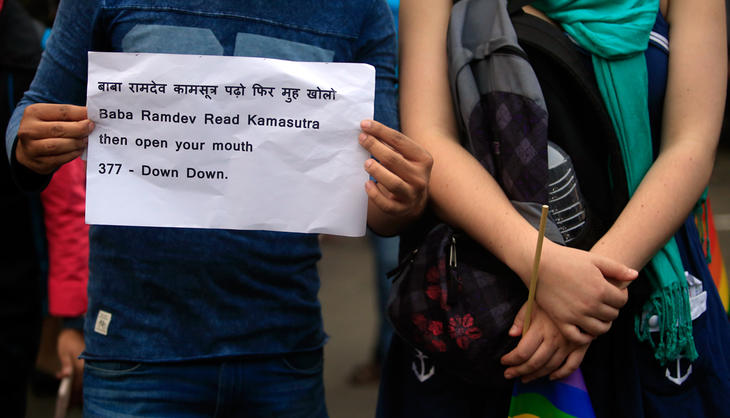 बाबा रामदेव कामसूत्र पढ़ो फिर मुह खोलो
Baba Ramdev Read Kamasutra
then open your mouth
377 - Down Down.